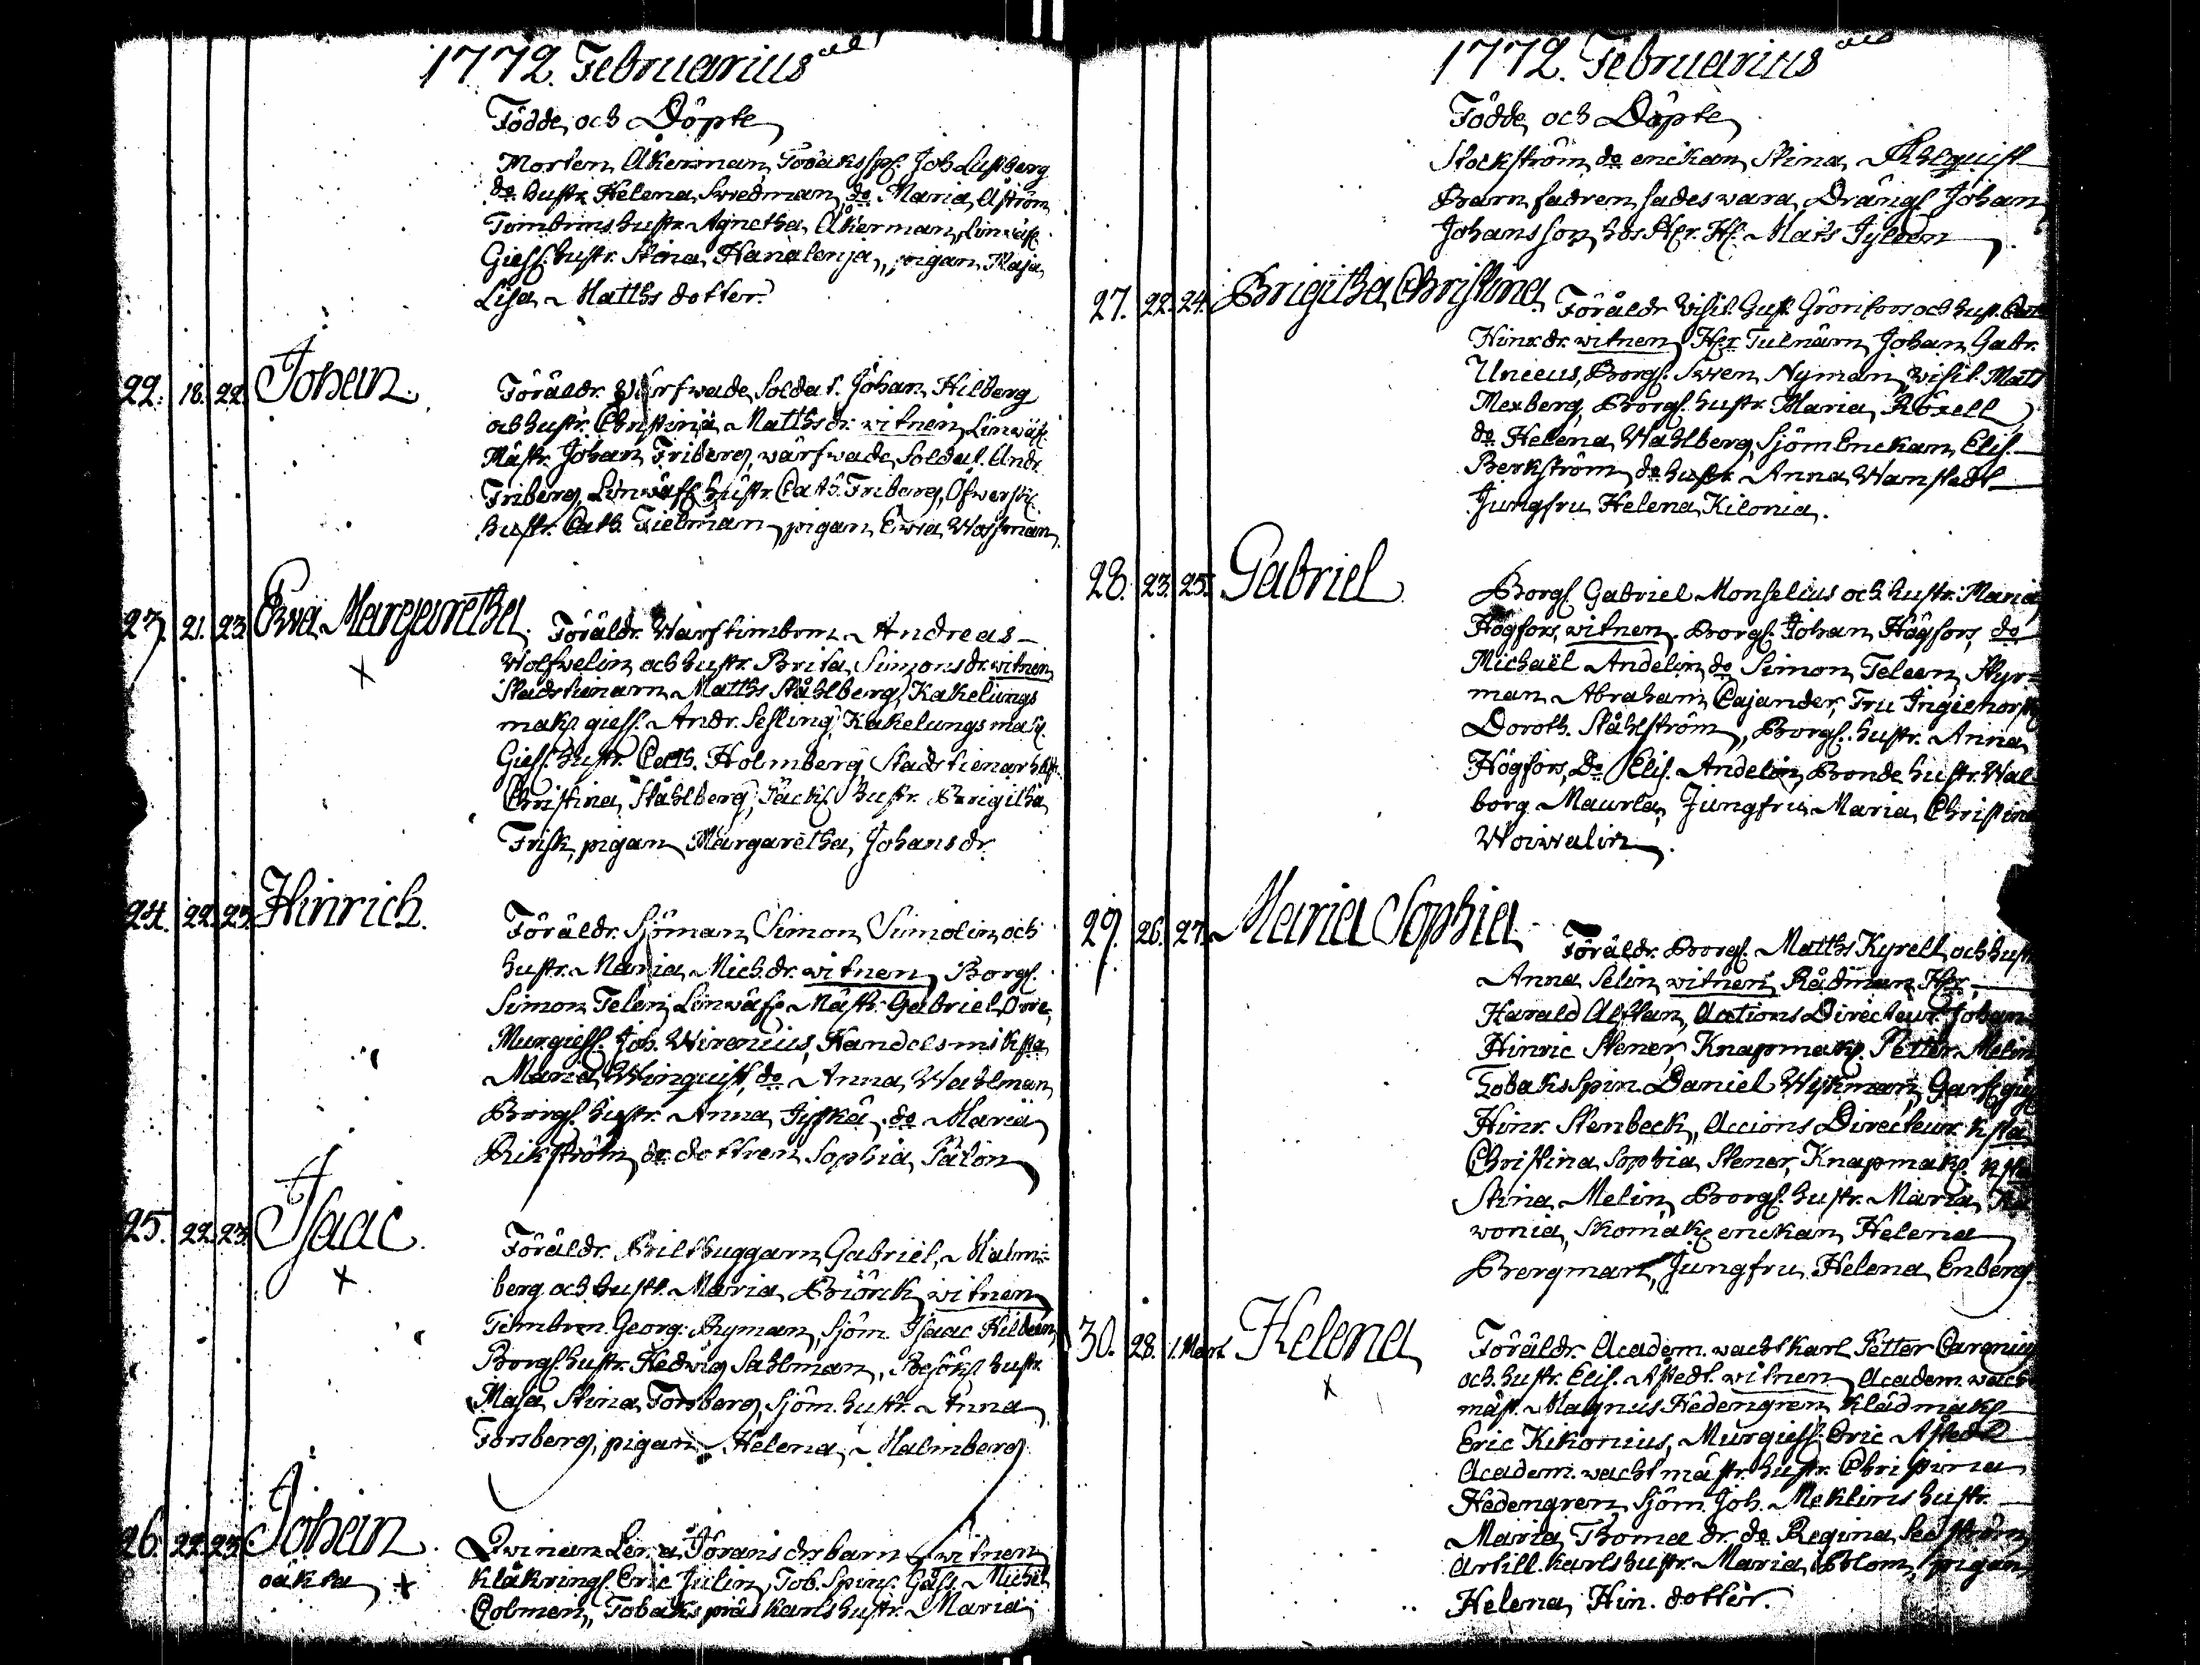 1772. Februarius
Födde och Döpte
Morten Åkerman, Tobakssp. Joh. Lustberg
do hustr. Helena Swedman, do Maria Åström
Timbrms hustr. Agnetha Åkerman, Linwäf.
Gies. hustr. Stina Hanalenja, pigan Maja
Lisa Matths dotter.
22. 18. 22. Johan. Föräldr. Wärfwade Soldat. Johan Hilberg
och hustr. Christina Matthsdr. witnen Linwäf.
Mästr. Johan Friberg, wärfwade Soldat. Andr.
Friberg, Linwäf. hustr. Cath. Friberg, Öfwerstl.
hustr. Cath. Tielman, pigan Ewa Wassman.
23. 21. 23. Ewa Margaretha. Föräldr. Warftimbrm. Andreas
Wolfwelin och hustr. Brita Simonsdr. witnen
Stadstienarn Matths Ståhlberg, Kakelungs
mak. giess. Andr. Sesling, Kakelungsmak.
Gies. hustr. Cath. Holmberg Stadstienar hustr.
Christina Ståhlberg, Säcks hustr. Brigitha
Frisk, pigan Margaretha Johansdr.
24. 22. 23. Hinrich. Föräldr. Sjöman Simon Simolin och
hustr. Maria Mich.dr. witnen Borgs.
Simon Telen, Linwäf. Mästr. Gabriel
Murgies. Joh. Wirenius, Handelsms k:sta
Maria Winquist, do Anna Wahlman
Borgs. hustr. Anna Jyskä, do Maria
Rikström, do dottren Sophia Palon
25. 22. 23. Isaac. Föräldr. Bilthuggarn Gabriel Malm-
berg och hustr. Maria Biörck, witnen
Timbrm. Georg. Ryman, Sjöm. Isaac Hilbom
Borgs. hustr. Hedwig Sahlman, Besöks hustr.
Maja Stina Forsberg, Sjöm. hustr. Anna
Forsberg, pigan Helena Malmberg
26. 22. 23. Johan. Qwinan Lena Göransdr barn witnen
oäkta Kläkrings. Eric Julin, Tob. Spin. Gäs. Michel
Colmen, Tobaks prässkarls hustr. Maria
1772. Februarius
Födde och Döpte
Stockström, do enckan Stina Ahlquist
Barnfadren sades wara Drängs Johan
Johansson hos H:r Matts Tyleen
27. 22. 24. Brigitha Christina. Föräldr. Visit. Gust. Grönfors och hust.
Hinr.dr. witnen H:r Tulnärn Johan Gabr.
Unceus, Borgs. Swen Nyman, Visit. Mats
Mexberg, Borgs. hustr. Maria Röxell
do Helena Wahlberg, Sjöm Enckan Elis.
Berkström, do hustr. Anna Wanstedt
Jungfru Helena Kilonia.
28. 23. 25. Gabriel. Borgs Gabriel Monselius och hustr. Maria
Högfors, witnen. Borgs. Johan Högfors, do
Michaël Andelin, do Simon Teleen, Styr-
man Abraham Cajander, Fru
Doroth. Ståhlström, Borgs. hustr. Anna
Högfors, Do Elis. Andelin, Bonde hustr. Wal-
borg Maurla, Jungfru Maria Christina
Woiwalin.
29. 26. 27. Maria Sophia. Föräldr. Borgs. Matths Kyrell och hustr.
Anna Selin, witnen Rådman H:r
Harald Alftan, Actions Directeur. Johan
Hinric Stener, Knapmak. Petter Melin
Tobaksspin. Daniel Wykman,
Hinr. Stenbeck, Accions Directeur. k:sta
Christina Sophia Stener, Knapmak. k:sta
Stina Melin, Borgs. hustr. Maria
wonia, Skomak. enckan Helena
Bergman, Jungfru Helena Enberg
30. 28. 1. Mart. Helena Föräldr. Academ. wachtkarl Petter Carenius
och hustr. Elis. Åstedt. witnen Academ. wacht
mäst. Magnus Hedengren, Klädmak.
Eric Kikonius, Murgies. Eric Åstedt
Academ. wachtmästr. hustr. Christina
Hedengren, Sjöm. Joh. Meklins hustr.
Maria Thoma dr. do Regina
Artill. Karls hustr. Maria Blom, pigan
Helena Hin. dotter.